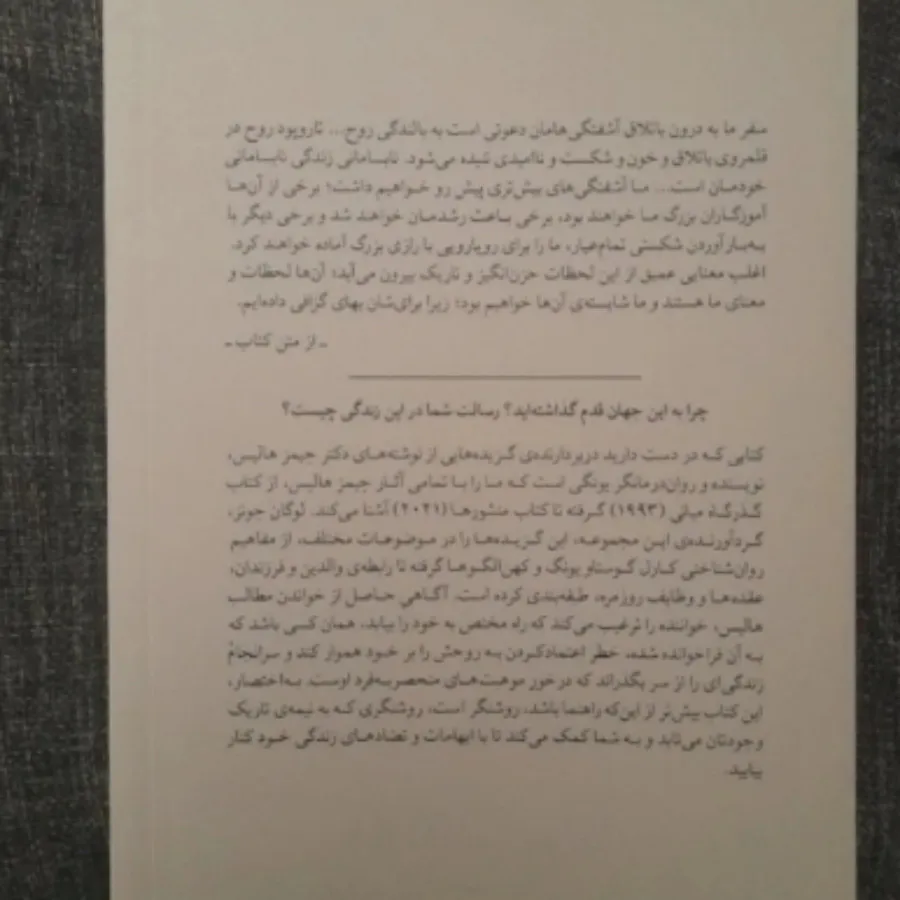 سفر ما به درون باتلاق آشفتگی‌هامان دعوتی است به بالندگی روح... تاروپود روح در
قلمروی باتلاق و خون و شکست و ناامیدی تنیده می‌شود. نابسامانی زندگی نابسامانی
خودمان است... ما آشفتگی‌های بیش‌تری پیش رو خواهیم داشت؛ برخی از آن‌ها
آموزگاران بزرگ ما خواهند بود، برخی باعث رشدمان خواهند شد و برخی دیگر با
به‌بارآوردن شکستی تمام‌عیار، ما را برای رویارویی با رازی بزرگ آماده خواهند کرد.
اغلب معنایی عمیق از این لحظات حزن‌انگیز و تاریک بیرون می‌آید؛ آن‌ها لحظات و
معنای ما هستند و ما شایسته‌ی آن‌ها خواهیم بود؛ زیرا برای‌شان بهای گزافی داده‌ایم.
ـ از متن کتاب ـ
چرا به این جهان قدم گذاشته‌اید؟ رسالت شما در این زندگی چیست؟
کتابی که در دست دارید دربردارنده‌ی گزیده‌هایی از نوشته‌های دکتر جیمز هالیس،
نویسنده و روان‌درمانگر یونگی است که ما را با تمامی آثار جیمز هالیس، از کتاب
گذرگاه میانی (۱۹۹۳) گرفته تا کتاب منشورها (۲۰۲۱) آشنا می‌کند. لوگان جونز،
گردآورنده‌ی این مجموعه، این گزیده‌ها را در موضوعات مختلف، از مفاهیم
روان‌شناختی کارل گوستاو یونگ و کهن‌الگوها گرفته تا رابطه‌ی والدین و فرزندان،
عقده‌ها و وظایف روزمره، طبقه‌بندی کرده است. آگاهی حاصل از خواندن مطالب
هالیس، خواننده را ترغیب می‌کند که راه مختص به خود را بیابد، همان کسی باشد که
به آن فراخوانده شده، خطر اعتمادکردن به روحش را بر خود هموار کند و سرانجام
زندگی‌ای را از سر بگذراند که درخور موهبت‌های منحصربه‌فرد اوست. به‌اختصار،
این کتاب بیش‌تر از این‌که راهنما باشد، روشنگر است، روشنگری که به نیمه‌ی تاریک
وجودتان می‌تابد و به شما کمک می‌کند تا با ابهامات و تضادهای زندگی خود کنار
بیایید.